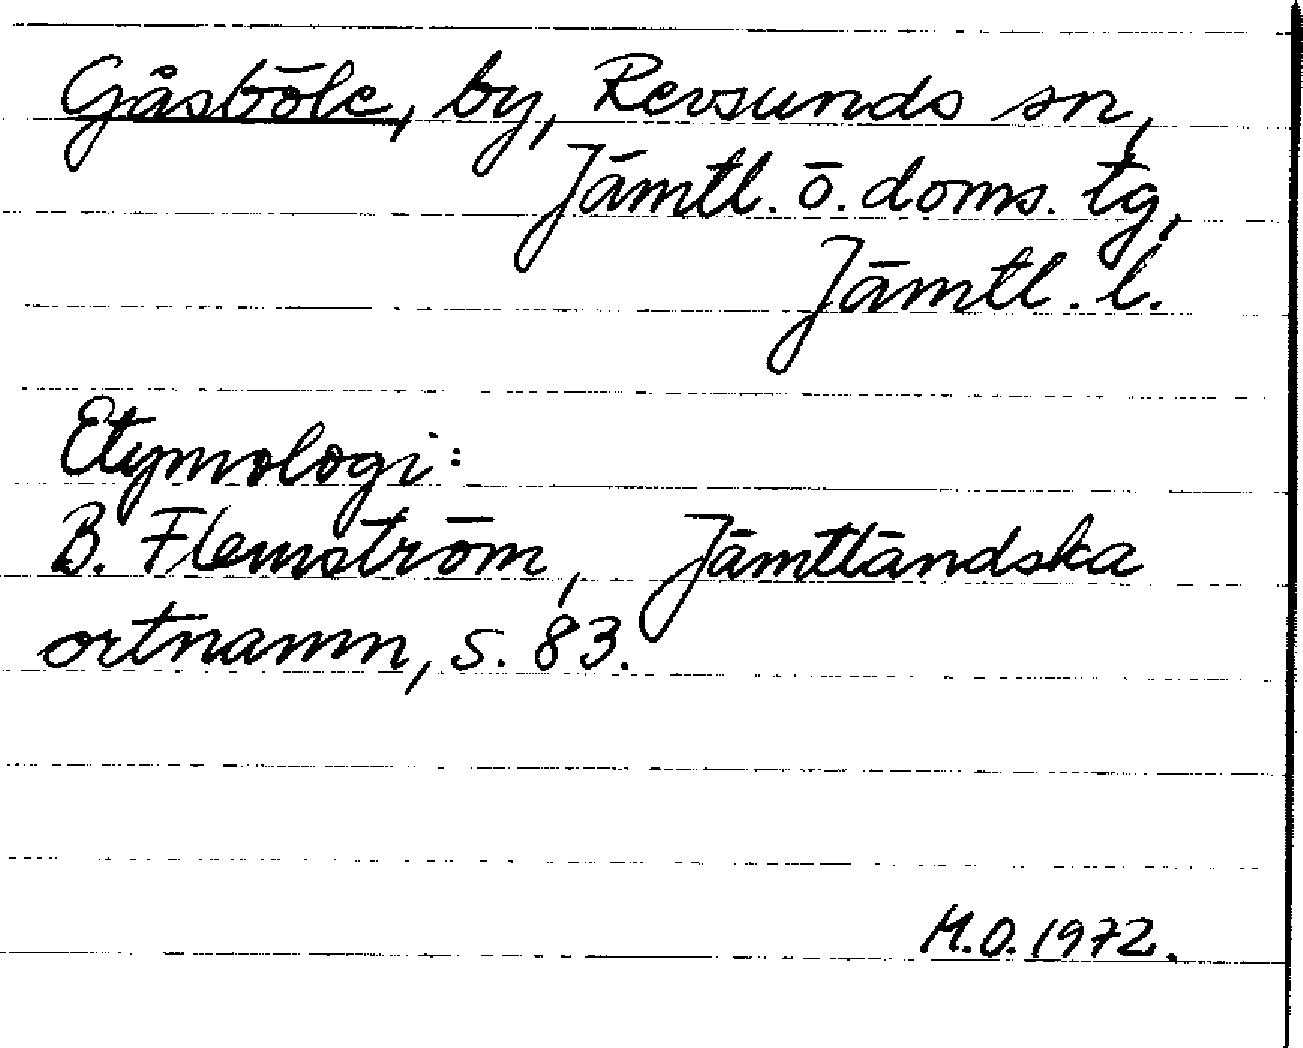 Gåsböle, by, Revsunds sn,
Jämtl. ö. doms. tg,
Jämtl. l.
Etymologi:
B. Flemström, Jämtländska
ortnamn, s. 83.
M.O. 1972.